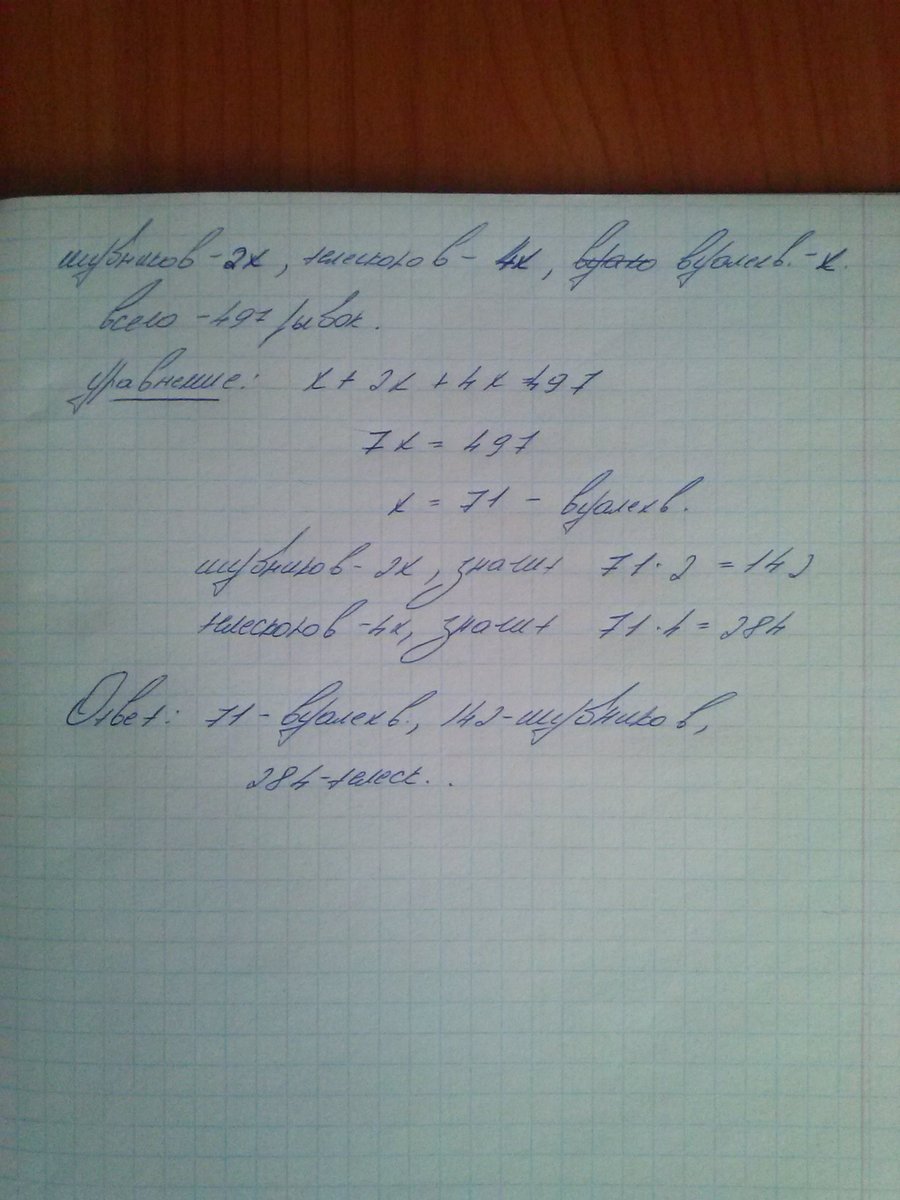 шубников - 2x, телескопов - 4x, вуалехв. - x.
всего - 497 рыбок.
уравнение: x + 2x + 4x = 497
7x = 497
x = 71 - вуалехв.
шубников - 2x, значит 71 · 2 = 142
телескопов - 4x, значит 71 · 4 = 284
Ответ: 71 - вуалехв., 142 - шубников,
284 - телеск..